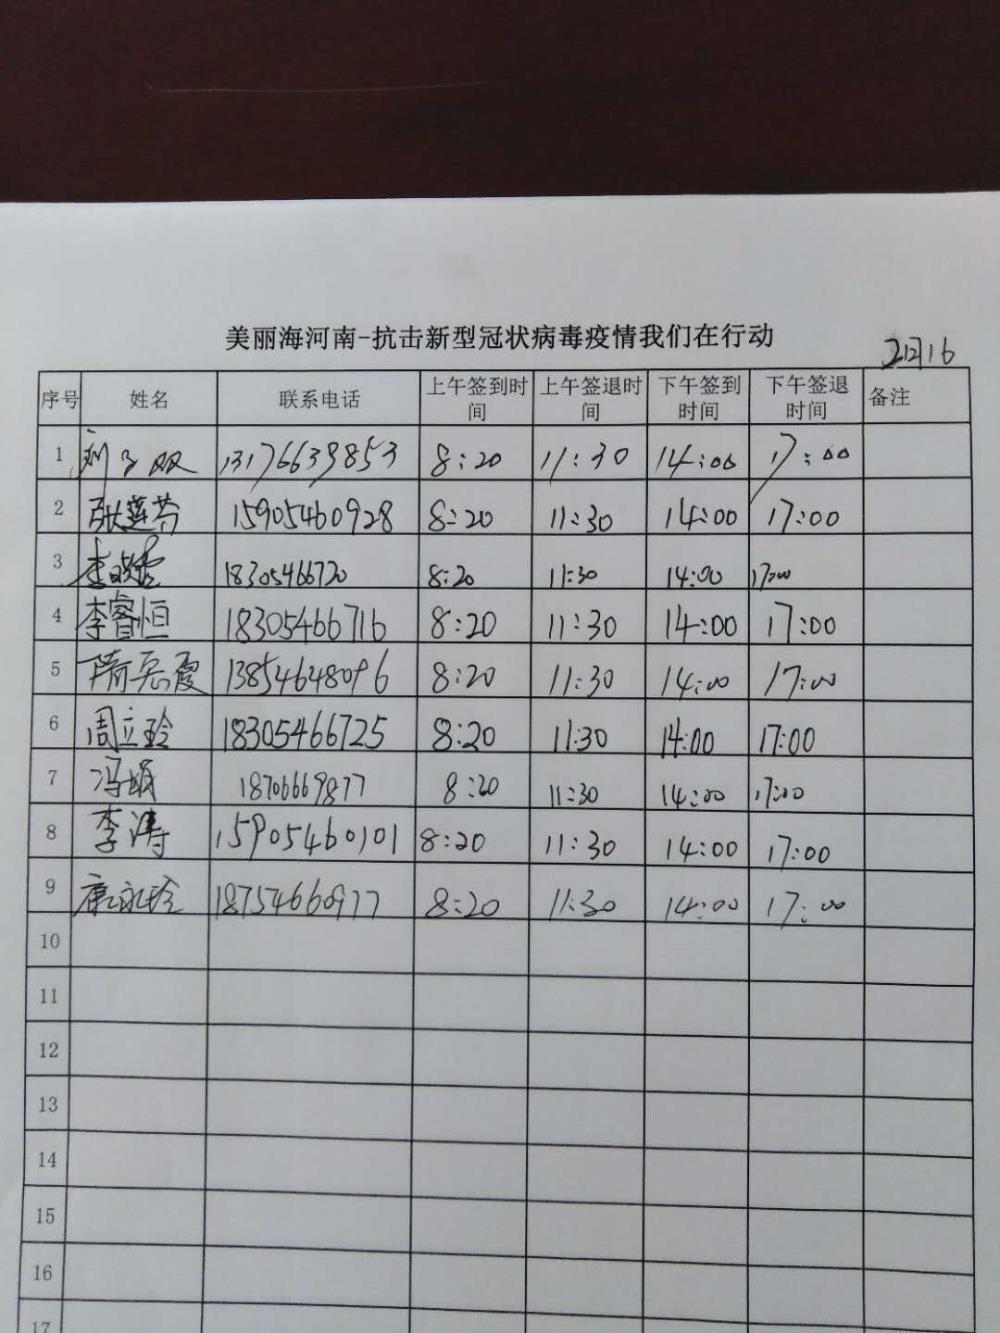 美丽海河南-抗击新型冠状病毒疫情我们在行动
2月16
序号 姓名 联系电话 上午签到时间 上午签退时间 下午签到时间 下午签退时间 备注
1 刘 双 13176639853 8:20 11:30 14:00 17:00
2 张莲芳 15905460928 8:20 11:30 14:00 17:00
3 李 18305466720 8:20 11:30 14:00 17:00
4 李睿恒 18305466716 8:20 11:30 14:00 17:00
5 隋 霞 13854648096 8:20 11:30 14:00 17:00
6 周立玲 18305466725 8:20 11:30 14:00 17:00
7 冯娟 18706669877 8:20 11:30 14:00 17:00
8 李涛 15905460101 8:20 11:30 14:00 17:00
9 康永玲 18754660977 8:20 11:30 14:00 17:00
10
11
12
13
14
15
16
17